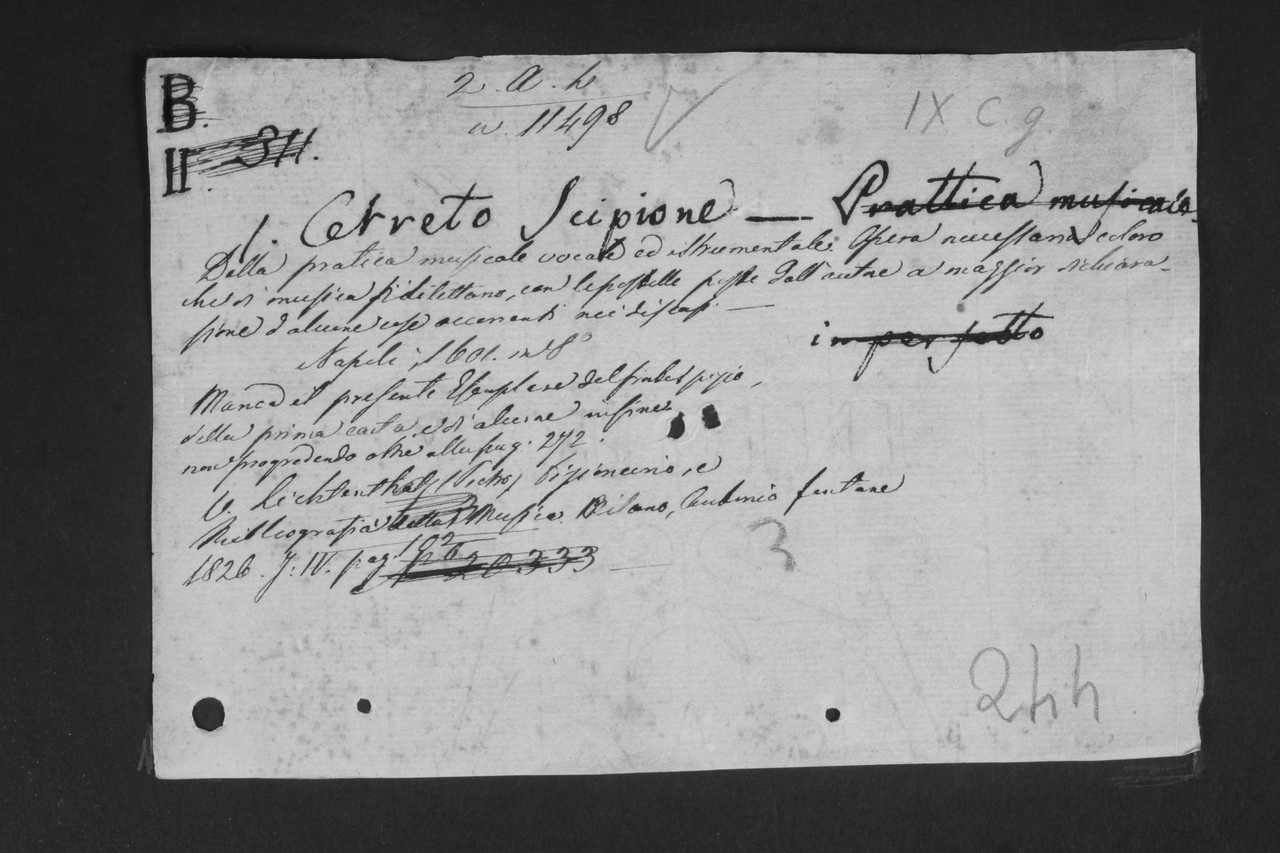 B.
II. 311.
2. A. 4
n. 11498
IX C. g.
1. Cerreto Scipione — Prattica musicale
Della pratica musicale vocale ed istrumentale. Opera necessaria a coloro
che di musica si dilettano, con le postille poste dall'autore a maggior dichiara-
zione d'alcune cose occorrenti nei discorsi —
imperfetto
Napoli, 1601. in 8°
Manca il presente Esemplare del frontespizio,
della prima carta, e di alcune in fine
non progredendo oltre alla pag. 272.
V. Lichtenthal (Pietro) Dizionario, e
Bibliografia della Musica. Milano, Antonio Fontana
1826. T. IV. pag. 102
20333
3
244